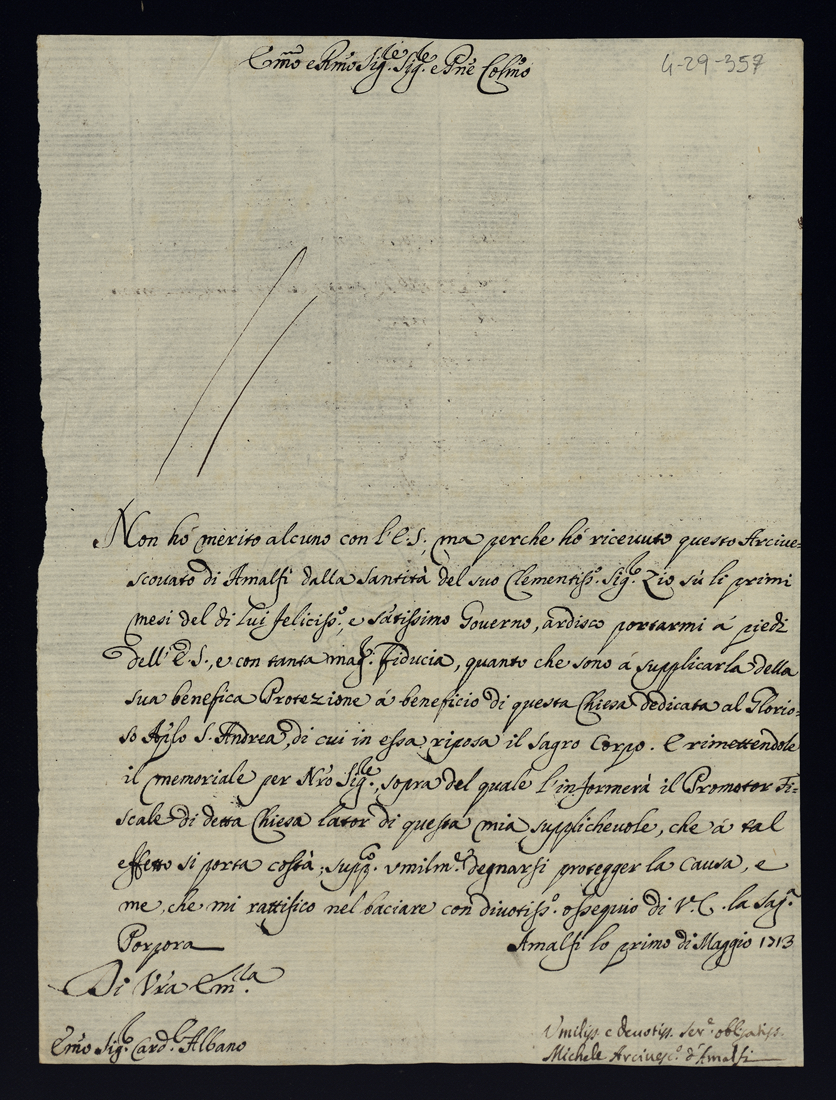 Em̃o e Rm̃o Sig.re Sig.re e Pñe Colm̃o
4-29-357
Non hò merito alcuno con l'E.S., ma perche hò ricevuto questo Arcive=
scovato di Amalfi dalla Santità del suo Clementiss.o Sig.r Zio sù li primi
mesi del di lui feliciss.o, e sãtissimo Governo, ardisco portarmi á piedi
dell'E.S., e con tanta mag.r Fiducia, quanto che sono á supplicarla della
sua benefica Protezione á beneficio di questa Chiesa dedicata al Glorio=
so Ap̃lo S. Andrea, di cui in essa riposa il Sagro Corpo. E rimettendole
il memoriale per Nr̃o Sig.re, sopra del quale l'informerà il Promotor Fi=
scale di detta Chiesa lator di questa mia supplichevole, che á tal
effetto si porta costà; supp.o umilm.e degnarsi protegger la Causa, e
me, che mi rattifico nel baciare con divotiss.o ossequio di V.E. la Sag.a
Porpora
Amalfi lo primo di Maggio 1713
Di Vr̃a Em.lla
Em̃o Sig.r Card.l Albano
Umiliss. e devotiss. Ser.e obligatiss.
Michele Arcivesc.o d'Amalfi